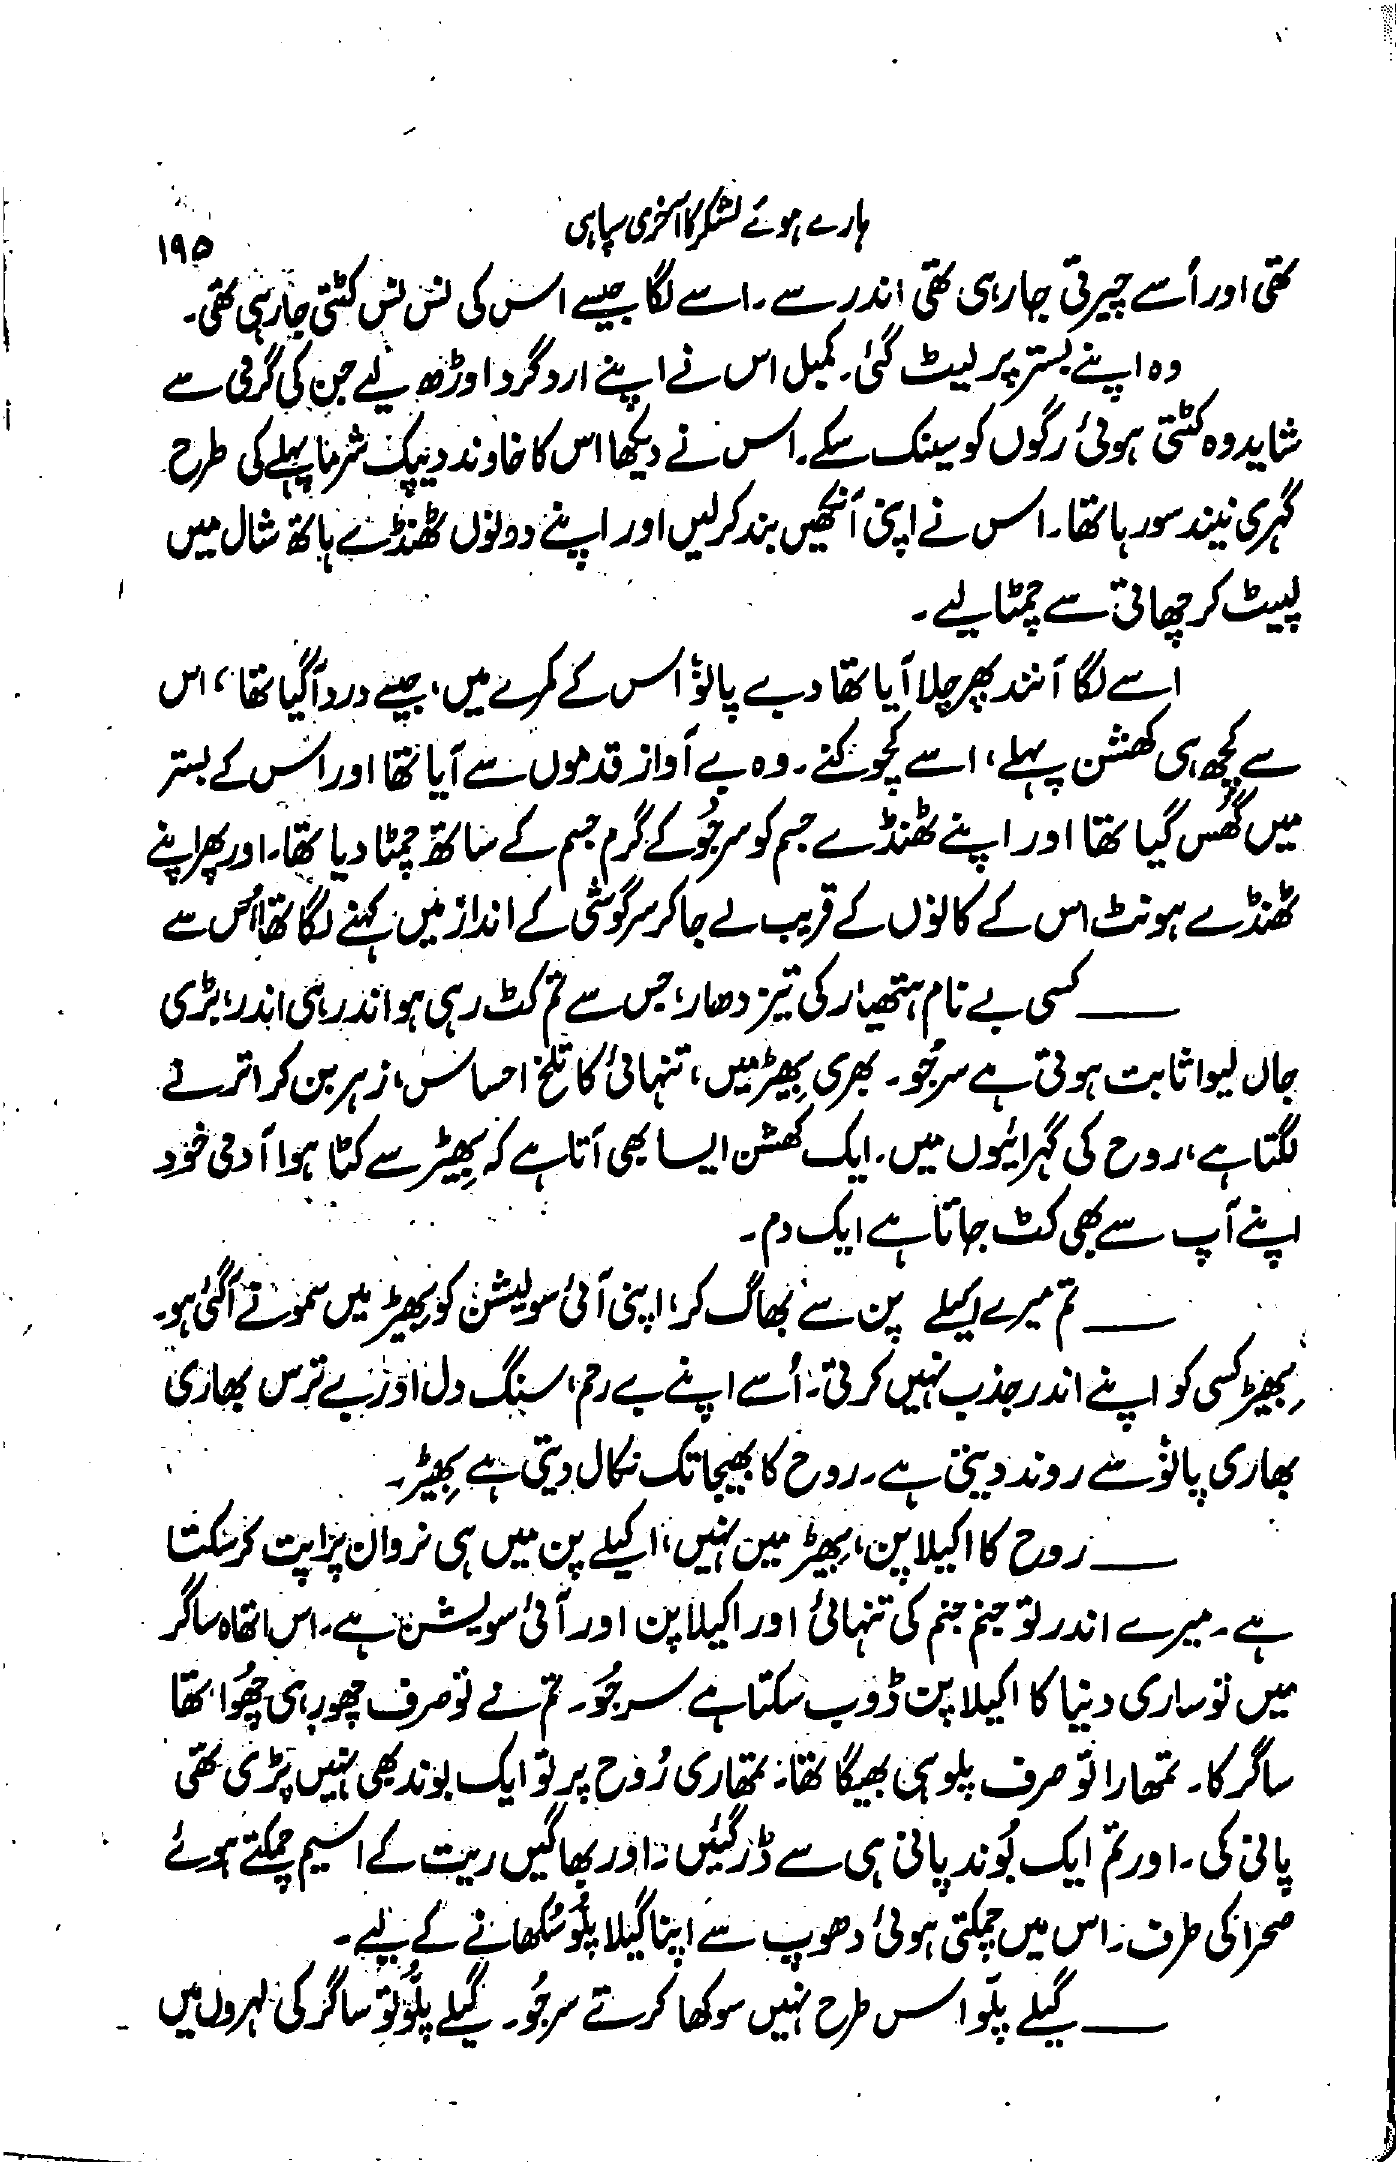 ہارے ہوئے لشکر کا آخری سپاہی
۱۹۵
تھی اور اُسے چیرتی جا رہی تھی اندر سے۔ اسے لگا جیسے اس کی نس نس کٹتی جا رہی تھی۔
وہ اپنے بستر پر لیٹ گئی۔ کمبل اس نے اپنے ارد گرد اوڑھ لیے جن کی گرمی سے
شاید وہ کٹتی ہوئی رگوں کو سینک سکے۔ اس نے دیکھا اس کا خاوند دیپک شرما پہلے کی طرح
گہری نیند سو رہا تھا۔ اس نے اپنی آنکھیں بند کر لیں اور اپنے دونوں ٹھنڈے ہاتھ شال میں
لپیٹ کر چھاتی سے چمٹا لیے۔
اسے لگا آنند پھر چلا آیا تھا دبے پانؤ اس کے کمرے میں، جیسے درد آ گیا تھا، اس
سے کچھ ہی کھشن پہلے، اسے کچوکنے۔ وہ بے آواز قدموں سے آیا تھا اور اس کے بستر
میں گھُس گیا تھا اور اپنے ٹھنڈے جسم کو سرجُو کے گرم جسم کے ساتھ چمٹا دیا تھا۔ اور پھر اپنے
ٹھنڈے ہونٹ اس کے کانوں کے قریب لے جا کر سرگوشی کے انداز میں کہنے لگا تھا اُس سے
—— کسی بے نام ہتھیار کی تیز دھار، جس سے تم کٹ رہی ہو اندر ہی اندر، بڑی
جان لیوا ثابت ہوتی ہے سرجُو۔ بھری بھِیڑ میں، تنہائی کا تلخ احساس، زہر بن کر اترنے
لگتا ہے، روح کی گہرائیوں میں۔ ایک کھشن ایسا بھی آتا ہے کہ بھِیڑ سے کٹا ہوا آدمی خود
اپنے آپ سے بھی کٹ جاتا ہے ایک دم۔
—— تم میرے اکیلے پن سے بھاگ کر، اپنی آئی سولیشن کو بھِیڑ میں سمونے آ گئی ہو۔
بھِیڑ کسی کو اپنے اندر جذب نہیں کرتی۔ اُسے اپنے بے رحم، سنگ دل اور بے ترس بھاری
بھاری پانؤ سے روند دیتی ہے۔ روح کا بھیجا تک نکال دیتی ہے بھِیڑ۔
—— روح کا اکیلا پن، بھِیڑ میں نہیں، اکیلے پن میں ہی نروان پراپت کر سکتا
ہے۔ میرے اندر تو جنم جنم کی تنہائی اور اکیلا پن اور آئی سولیشن ہے۔ اس اتھاہ ساگر
میں تو ساری دنیا کا اکیلا پن ڈوب سکتا ہے سرجُو۔ تم نے تو صرف چھور ہی چھُوا تھا
ساگر کا۔ تمھارا تو صرف پلو ہی بھیگا تھا۔ تمھاری رُوح پر تو ایک بوند بھی نہیں پڑی تھی
پانی کی۔ اور تم ایک بُوند پانی ہی سے ڈر گئیں۔ اور بھاگیں ریت کے اسیم چمکتے ہوئے
صحرا کی طرف۔ اس میں چمکتی ہوئی دھوپ سے اپنا گیلا پلُّو سُکھانے کے لیے۔
—— گیلے پلّو اس طرح نہیں سوکھا کرتے سرجُو۔ گیلے پلُّو تو ساگر کی لہروں میں